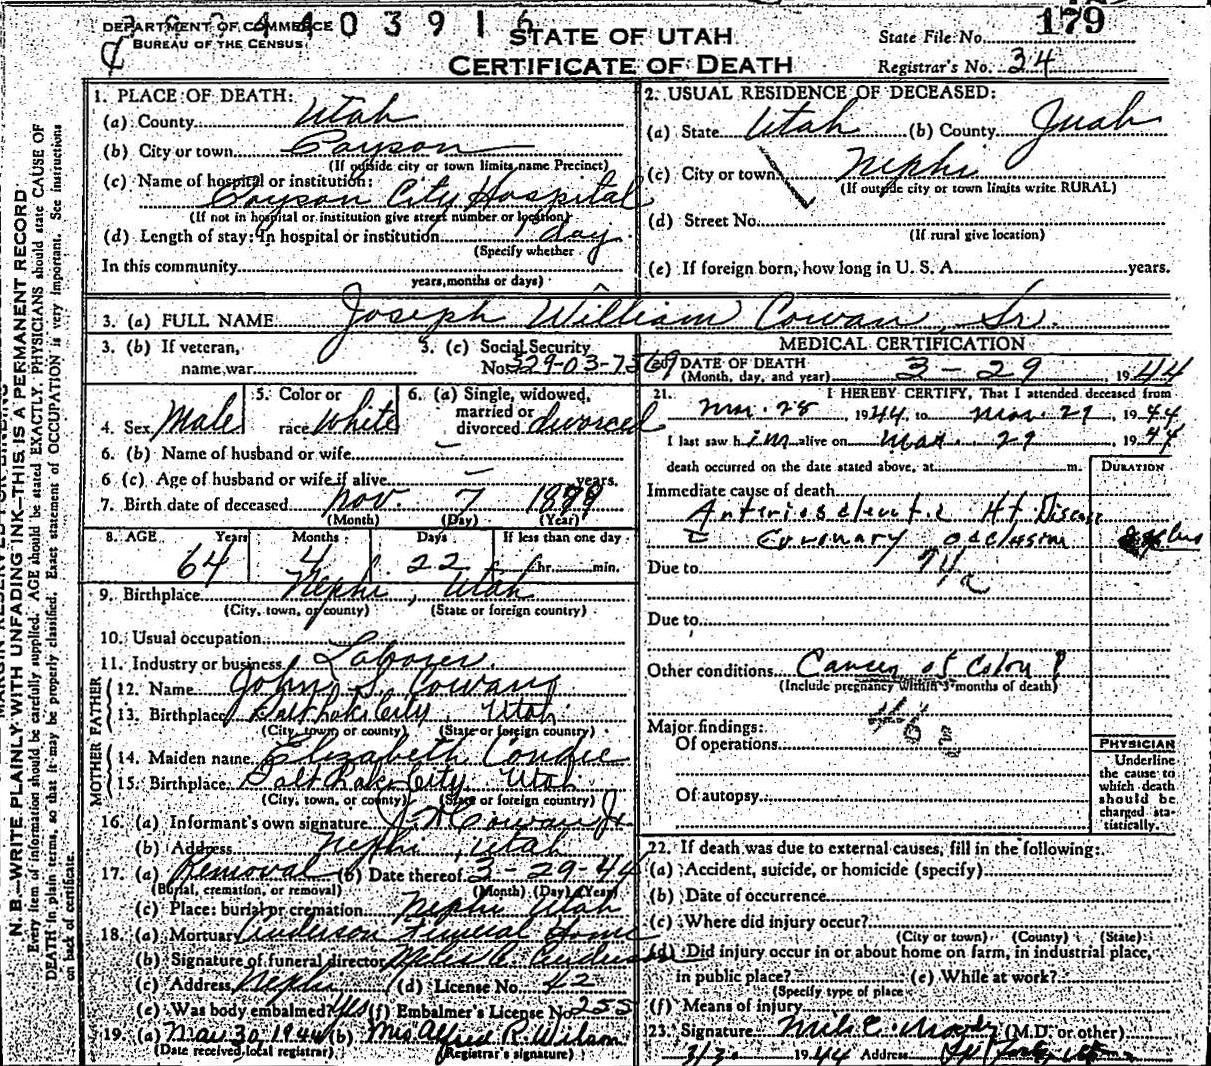 DEPARTMENT OF COMMERCE
BUREAU OF THE CENSUS
4403916
STATE OF UTAH
CERTIFICATE OF DEATH
State File No. 179
Registrar's No. 34
1. PLACE OF DEATH:
(a) County Utah
(b) City or town Payson
(If outside city or town limits name Precinct)
(c) Name of hospital or institution:
Payson City Hospital
(If not in hospital or institution give street number or location)
(d) Length of stay: In hospital or institution day
(Specify whether
In this community
years, months or days)
2. USUAL RESIDENCE OF DECEASED:
(a) State Utah (b) County Juab
(c) City or town Nephi
(If outside city or town limits write RURAL)
(d) Street No.
(If rural give location)
(e) If foreign born, how long in U. S. A. years.
3. (a) FULL NAME Joseph William Cowan, Sr.
3. (b) If veteran, name war
3. (c) Social Security
No. 329-03-7569
4. Sex Male
5. Color or race White
6. (a) Single, widowed, married or divorced divorced
6. (b) Name of husband or wife –
6 (c) Age of husband or wife if alive – years.
7. Birth date of deceased Nov. 7 1879
(Month) (Day) (Year)
8. AGE Years Months Days If less than one day
64 4 22 hr. min.
9. Birthplace Nephi, Utah
(City, town, or county) (State or foreign country)
10. Usual occupation
11. Industry or business Laborer
FATHER
12. Name John S. Cowan
13. Birthplace Salt Lake City, Utah
(City, town or county) (State or foreign country)
MOTHER
14. Maiden name Elizabeth Condie
15. Birthplace Salt Lake City, Utah
(City, town, or county) (State or foreign country)
16. (a) Informant's own signature J. W. Cowan Jr.
(b) Address Nephi, Utah
17. (a) Removal (b) Date thereof 3-29-44
(Burial, cremation, or removal) (Month) (Day) (Year)
(c) Place: burial or cremation Nephi Utah
18. (a) Mortuary Anderson Funeral Home
(b) Signature of funeral director
(c) Address Nephi (d) License No. 42
(e) Was body embalmed? Yes (f) Embalmer's License No. 255
19. (a) Mar 30, 1944 (b) Mrs Alfred R. Wilson
(Date received local registrar) (Registrar's signature)
MEDICAL CERTIFICATION
20. DATE OF DEATH
(Month, day, and year) 3-29 1944
21. I HEREBY CERTIFY, That I attended deceased from
Mar. 28, 1944 to Mar. 29, 1944
I last saw him alive on Mar. 29, 1944
death occurred on the date stated above, at m.
DURATION
Immediate cause of death
Arteriosclerotic Ht Disease
c Coronary occlusion
Due to
94a
Due to
Other conditions Cancer of Colon ?
(Include pregnancy within 3 months of death)
Major findings:
Of operations
Of autopsy
PHYSICIAN
Underline
the cause to
which death
should be
charged sta-
tistically.
22. If death was due to external causes, fill in the following:
(a) Accident, suicide, or homicide (specify)
(b) Date of occurrence
(c) Where did injury occur?
(City or town) (County) (State)
(d) Did injury occur in or about home on farm, in industrial place,
in public place? (e) While at work?
(Specify type of place
(f) Means of injury
23. Signature (M.D. or other)
1944 Address
N. B.—WRITE PLAINLY WITH UNFADING INK—THIS IS A PERMANENT RECORD
Every item of information should be carefully supplied. AGE should be stated EXACTLY. PHYSICIANS should state CAUSE OF
DEATH in plain terms, so that it may be properly classified. Exact statement of OCCUPATION is very important. See instructions
on back of certificate.